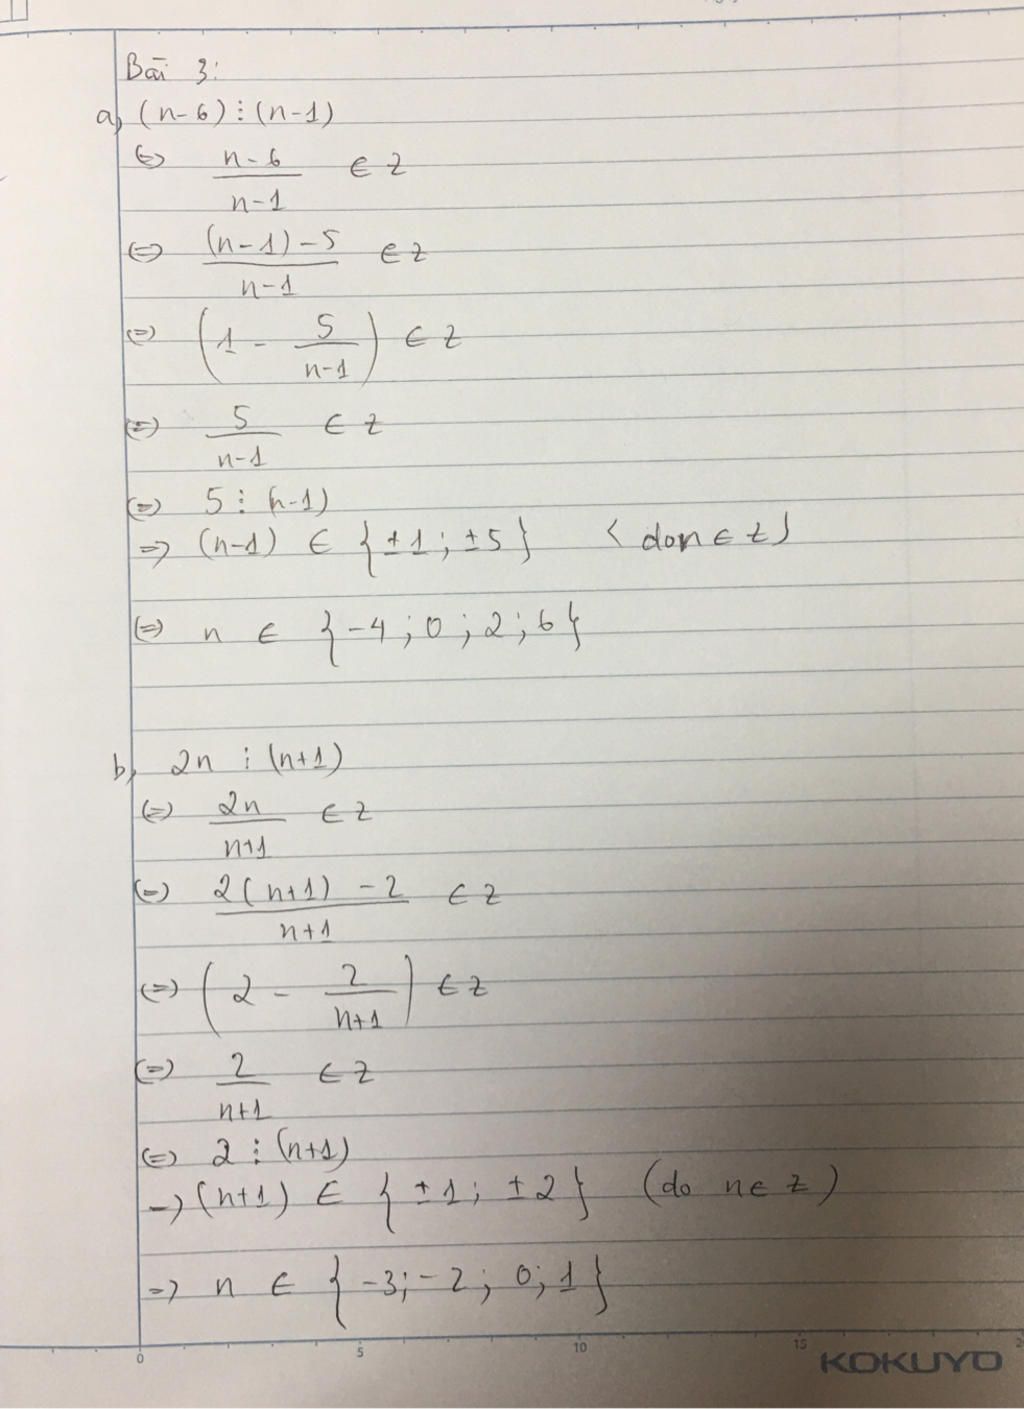 Bài 3:
a, (n-6) ⋮ (n-1)
⇔ n-6 / n-1 ∈ Z
⇔ (n-1)-5 / n-1 ∈ Z
⇔ (1 - 5 / n-1) ∈ Z
⇔ 5 / n-1 ∈ Z
⇔ 5 ⋮ (n-1)
⇒ (n-1) ∈ {±1; ±5} (do n ∈ Z)
⇔ n ∈ {-4; 0; 2; 6}
b, 2n ⋮ (n+1)
⇔ 2n / n+1 ∈ Z
⇔ 2(n+1) - 2 / n+1 ∈ Z
⇔ (2 - 2 / n+1) ∈ Z
⇔ 2 / n+1 ∈ Z
⇔ 2 ⋮ (n+1)
⇒ (n+1) ∈ {±1; ±2} (do n ∈ Z)
⇒ n ∈ {-3; -2; 0; 1}
0 5 10 15
KOKUYO